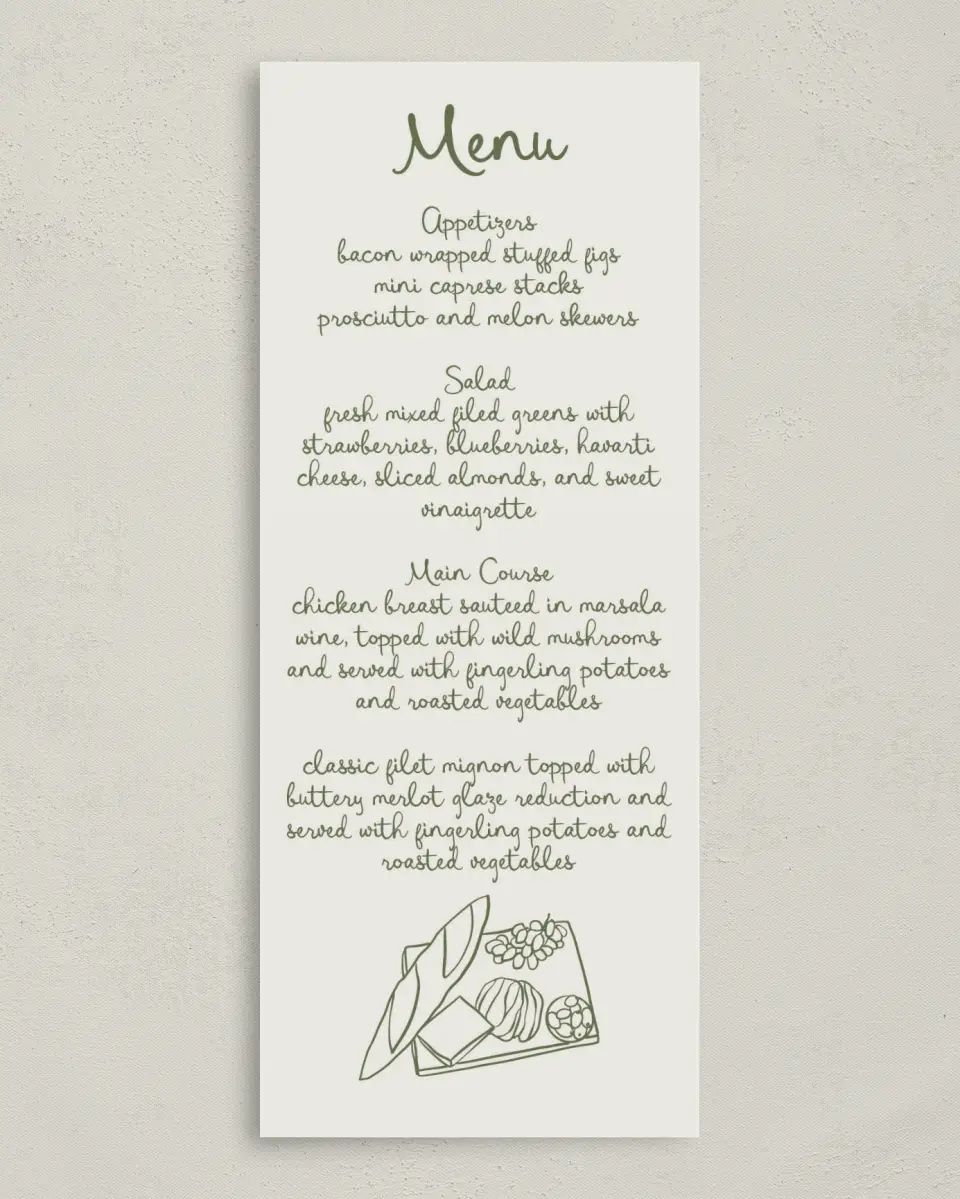 Menu
Appetizers
bacon wrapped stuffed figs
mini caprese stacks
prosciutto and melon skewers
Salad
fresh mixed filed greens with
strawberries, blueberries, havarti
cheese, sliced almonds, and sweet
vinaigrette
Main Course
chicken breast sauteed in marsala
wine, topped with wild mushrooms
and served with fingerling potatoes
and roasted vegetables
classic filet mignon topped with
buttery merlot glaze reduction and
served with fingerling potatoes and
roasted vegetables